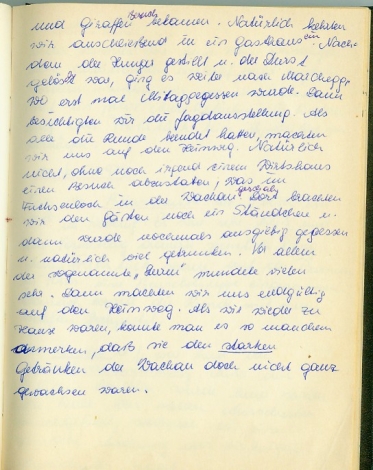 und Giraffen Besuch bekamen. Natürlich kehrten
wir anschließend in ein Gasthaus ein. Nach-
dem der Hunger gestillt u. der Durst
gelöscht war, ging es weiter nach Marchegg,
wo erst mal Mittaggegessen wurde. Dann
besichtigten wir die Jagdausstellung. Als
alle die Runde beendet hatten, machten
wir uns auf den Heimweg. Natürlich
nicht, ohne noch irgend einem Wirtshaus
einen Besuch abzustatten, was im
in der Wachau geschah. Dort brachten
wir den Gästen noch ein Ständchen u.
dann wurde nochmals ausgiebig gegessen
u. natürlich viel getrunken. Vor allem
der sogenannte " " mundete vielen
sehr. Dann machten wir uns endgültig
auf den Heimweg. Als wir wieder zu
Hause waren, konnte man es so manchem
anmerken, daß sie den starken
Getränken der Wachau doch nicht ganz
gewachsen waren.